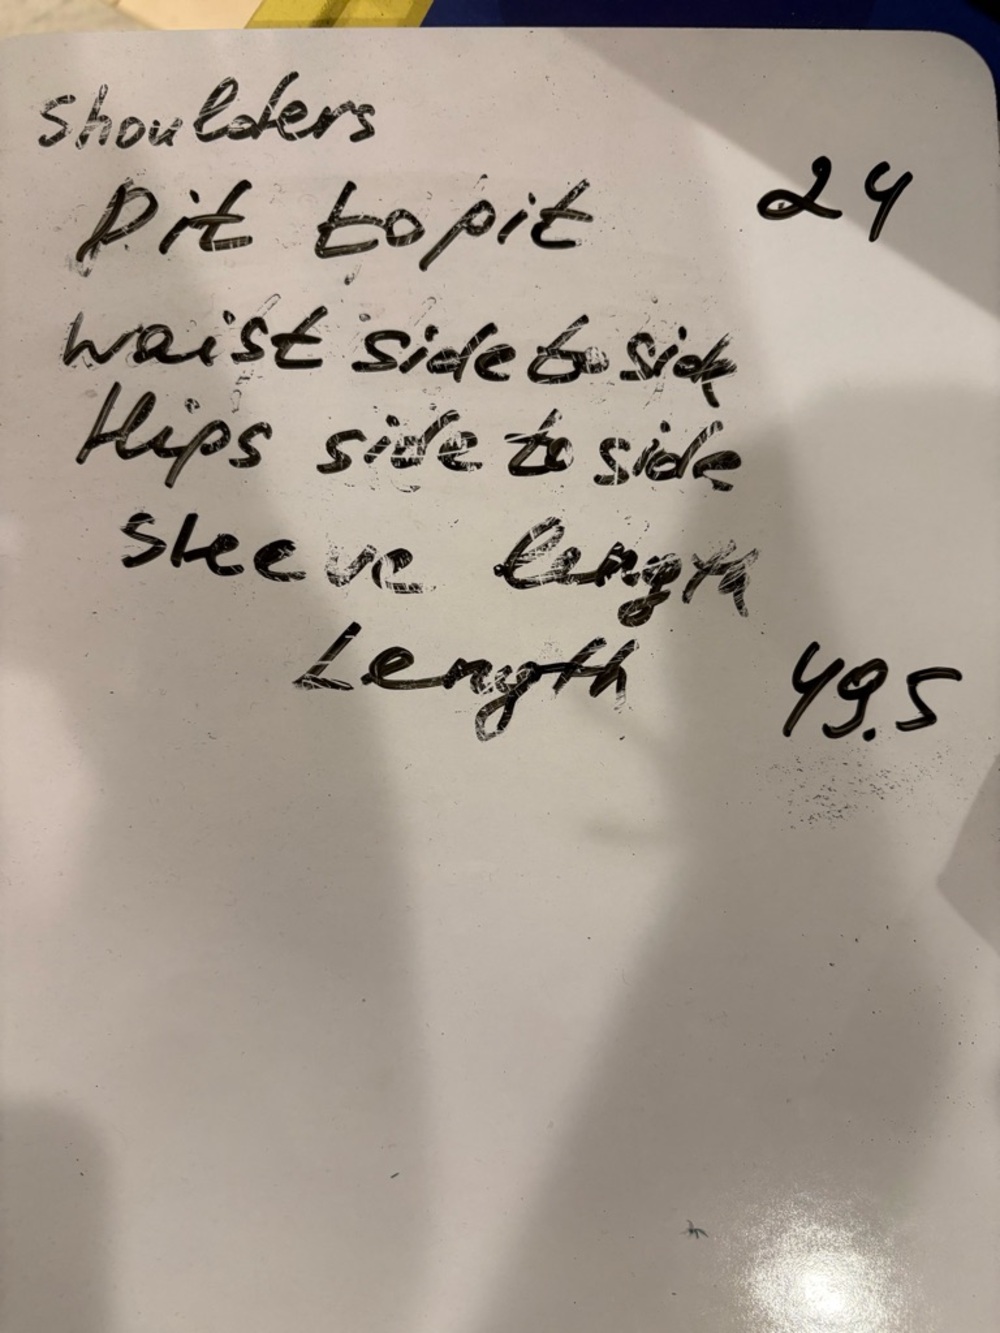 Shoulders
Pit to pit 24
waist side to side
Hips side to side
Sleeve length
Length 49.5